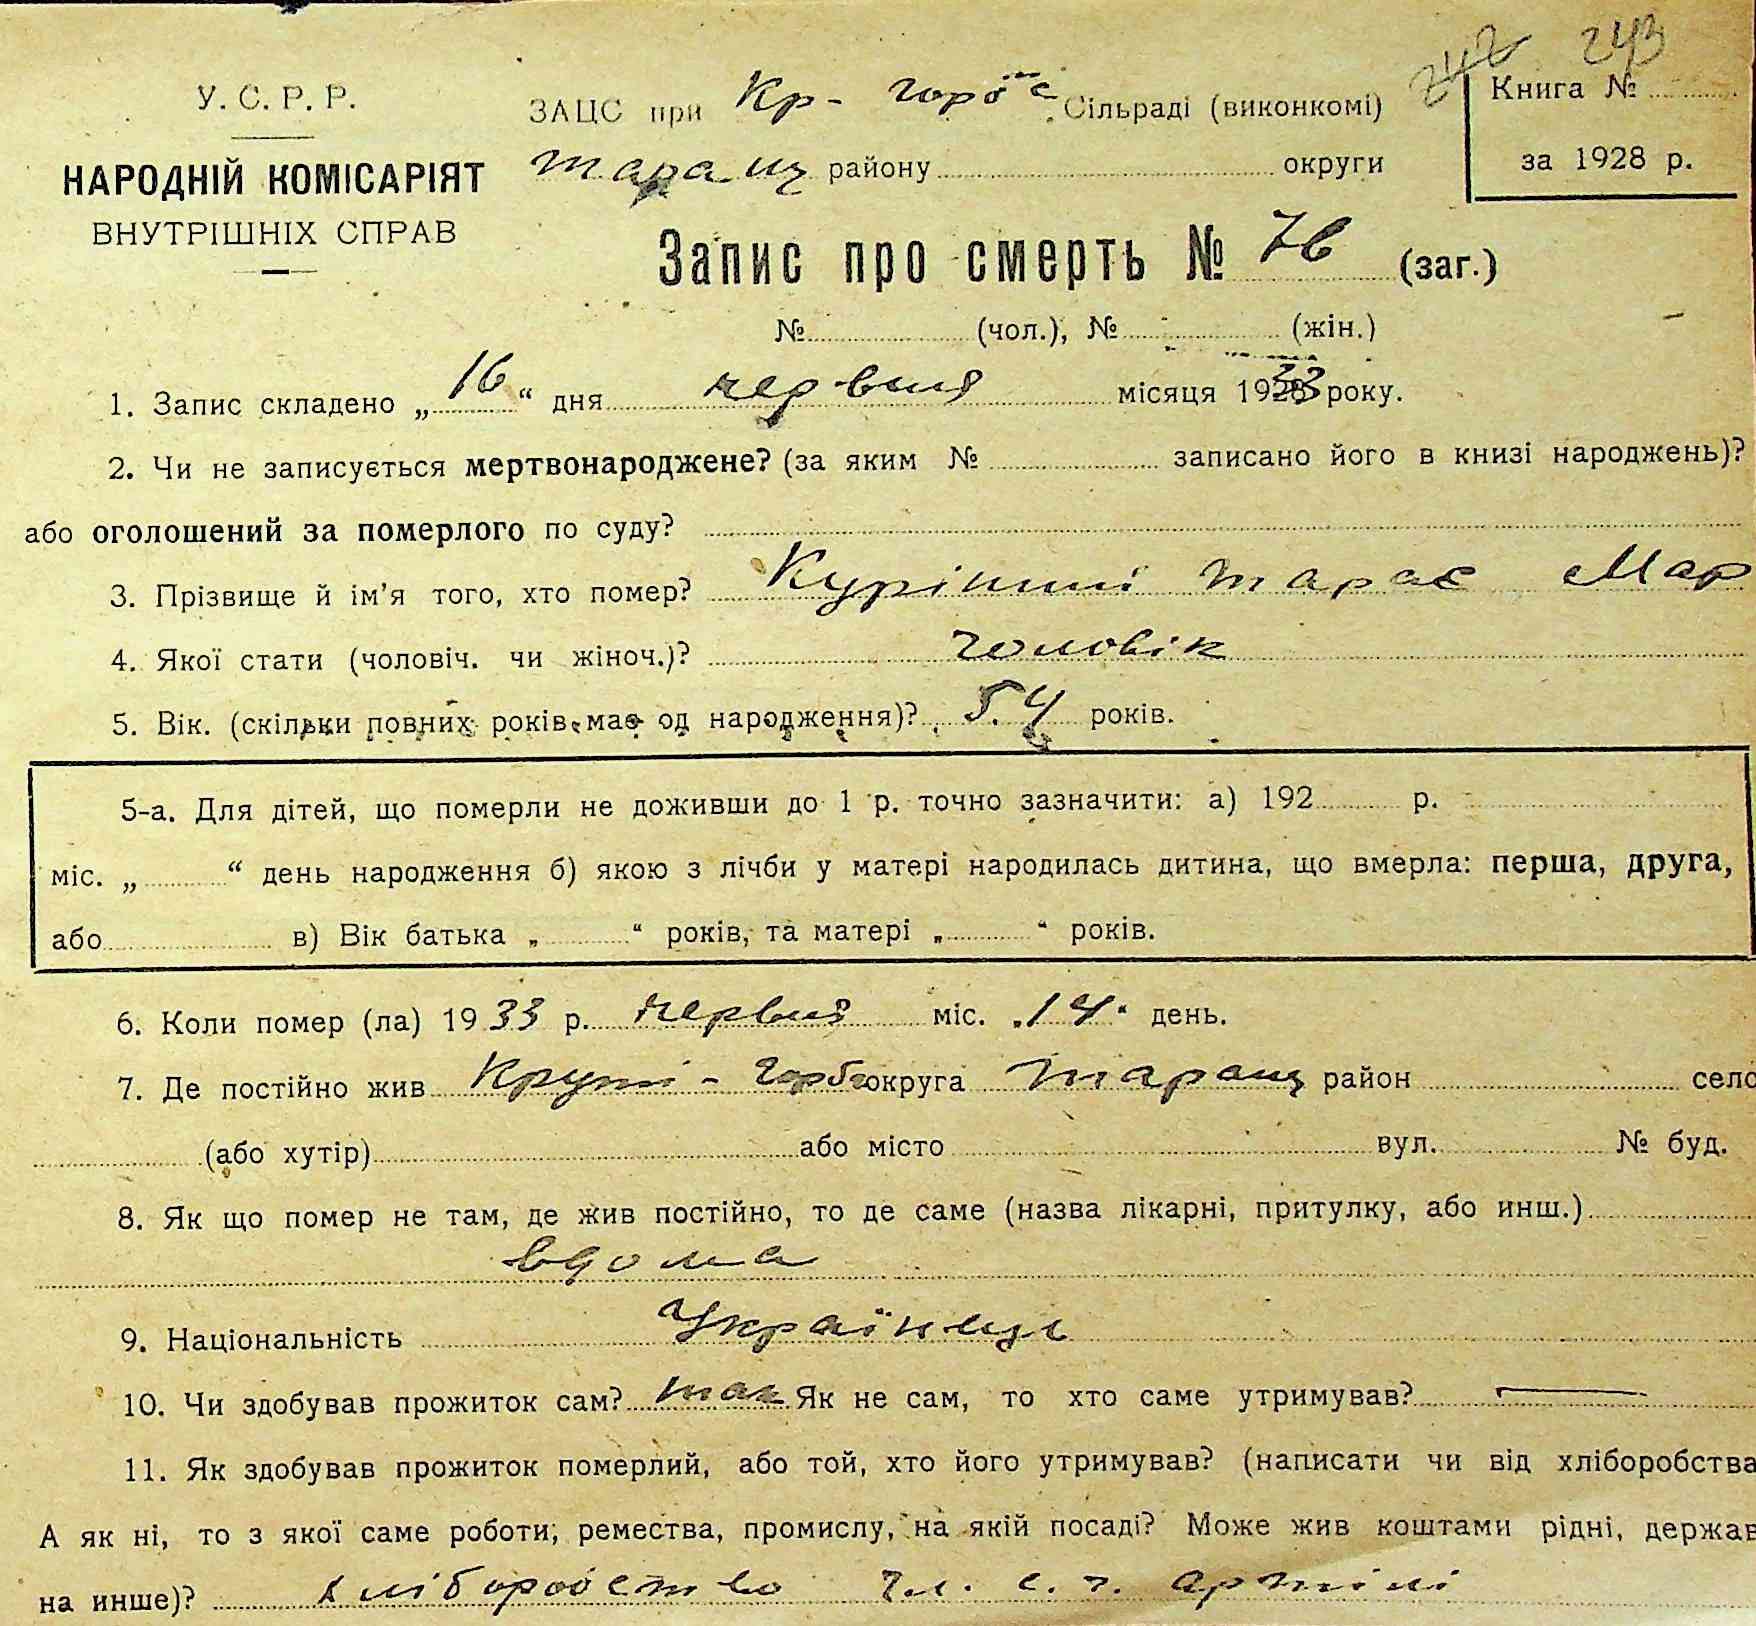 243
У. С. Р. Р.
НАРОДНІЙ КОМІСАРІЯТ
ВНУТРІШНІХ СПРАВ
ЗАЦС при Кр- горбс Сільраді (виконкомі)
Таращ району округи
Книга №
за 1928 р.
Запис про смерть № 76 (заг.)
№ (чол.), № (жін.)
1. Запис складено „16“ дня червня місяця 1933 року.
2. Чи не записується мертвонароджене? (за яким № записано його в книзі народжень)?
або оголошений за померлого по суду?
3. Прізвище й ім'я того, хто помер? Курінний Тарас Мар
4. Якої стати (чоловіч. чи жіноч.)? чоловік
5. Вік. (скільки повних років має од народження)? 54 років.
5-а. Для дітей, що померли не доживши до 1 р. точно зазначити: а) 192 р.
міс. „ “ день народження б) якою з лічби у матері народилась дитина, що вмерла: перша, друга,
або в) Вік батька „ “ років, та матері „ “ років.
6. Коли помер (ла) 1933 р. червня міс. „14“ день.
7. Де постійно жив Круті-Горби округа Таращ район село
(або хутір) або місто вул. № буд.
8. Як що помер не там, де жив постійно, то де саме (назва лікарні, притулку, або инш.)
вдома
9. Національність Українець
10. Чи здобував прожиток сам? так Як не сам, то хто саме утримував? —
11. Як здобував прожиток померлий, або той, хто його утримував? (написати чи від хліборобства
А як ні, то з якої саме роботи, ремества, промислу, на якій посаді? Може жив коштами рідні, держав
на инше)? хліборобство чл. с. г. артілі